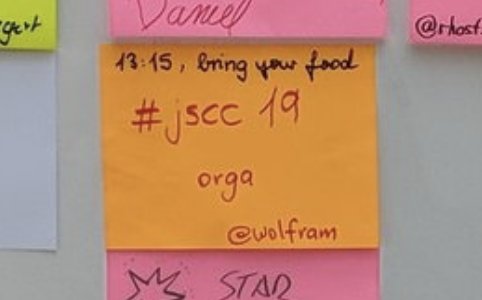 Daniel
@rhost
13:15, bring your food
#jscc 19
orga
@wolfram
STAR